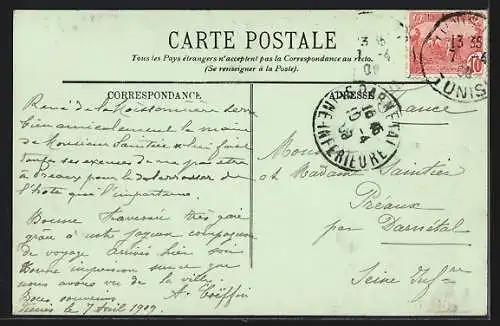 CARTE POSTALE
Tous les Pays étrangers n'acceptent pas la Correspondance au recto.
(Se renseigner à la Poste).
CORRESPONDANCE
ADRESSE
TUNIS
13 35
7 4
TUNIS
DARNETAL
16 45
10 -4
09
NE-INFERIEURE
10
France
René de la
bien amicalement la main
de Monsieur et lui fait
ses excuses de ne pas être
à pour le débarrasser de
l'hôte qui l'importune.
Bonne traversée très gaie
grâce à notre joyeux compagnon
de voyage arrivés hier soir
Bonne impression sur ce que
nous avons vu de la ville
Bons souvenirs A.
Tunis le 7 Avril 1909
et Madame Saintier
Préaux
par Darnétal
Seine Infre